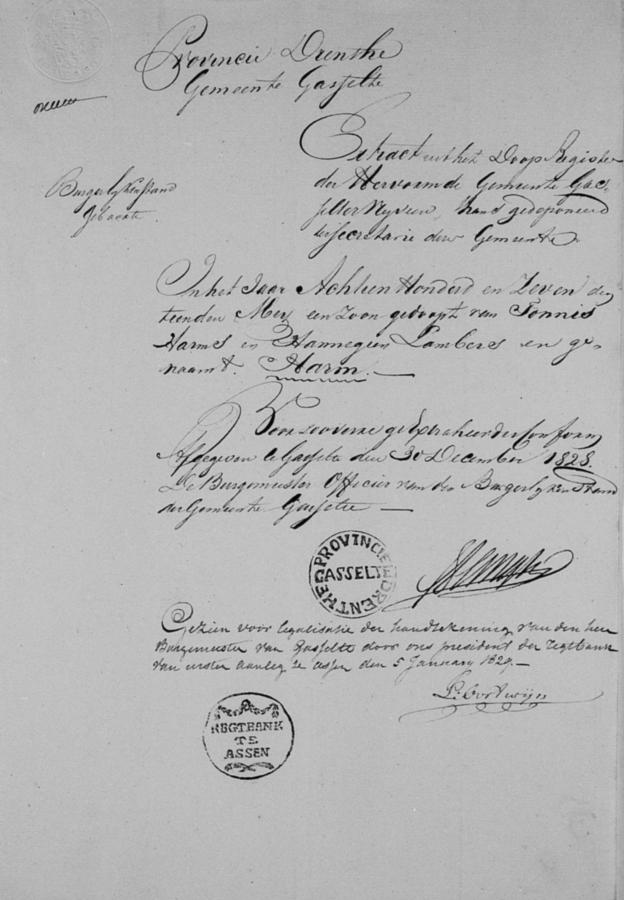 Provincie Drenthe
Gemeente Gasselte
Burgerlyken stand
Geboorte
Extract uit het Doop Register
der Hervormde Gemeente Gas-
selter Nyveen, thans gedeponeerd
ter secretarie dezer Gemeente.
In het Jaar Achtien Honderd en Zeven den
tienden Mey een Zoon gedoopt van Tonnis
Harms en Hannegien Lamberts en ge-
naamt. Harm.
Voor zooverre geExtraheerde Conform
Afgegeven te Gasselte den 30 December 1828.
De Burgemeester Officier van den Burgerlyken Stand
der Gemeente Gasselte
PROVINCIE DRENTHE
GASSELTE
Gezien voor legalisatie der handtekening van den heer
Burgemeester van Gasselte door ons president der regtbank
van eersten aanleg te Assen den 5 January 1829.
REGTBANK
TE
ASSEN